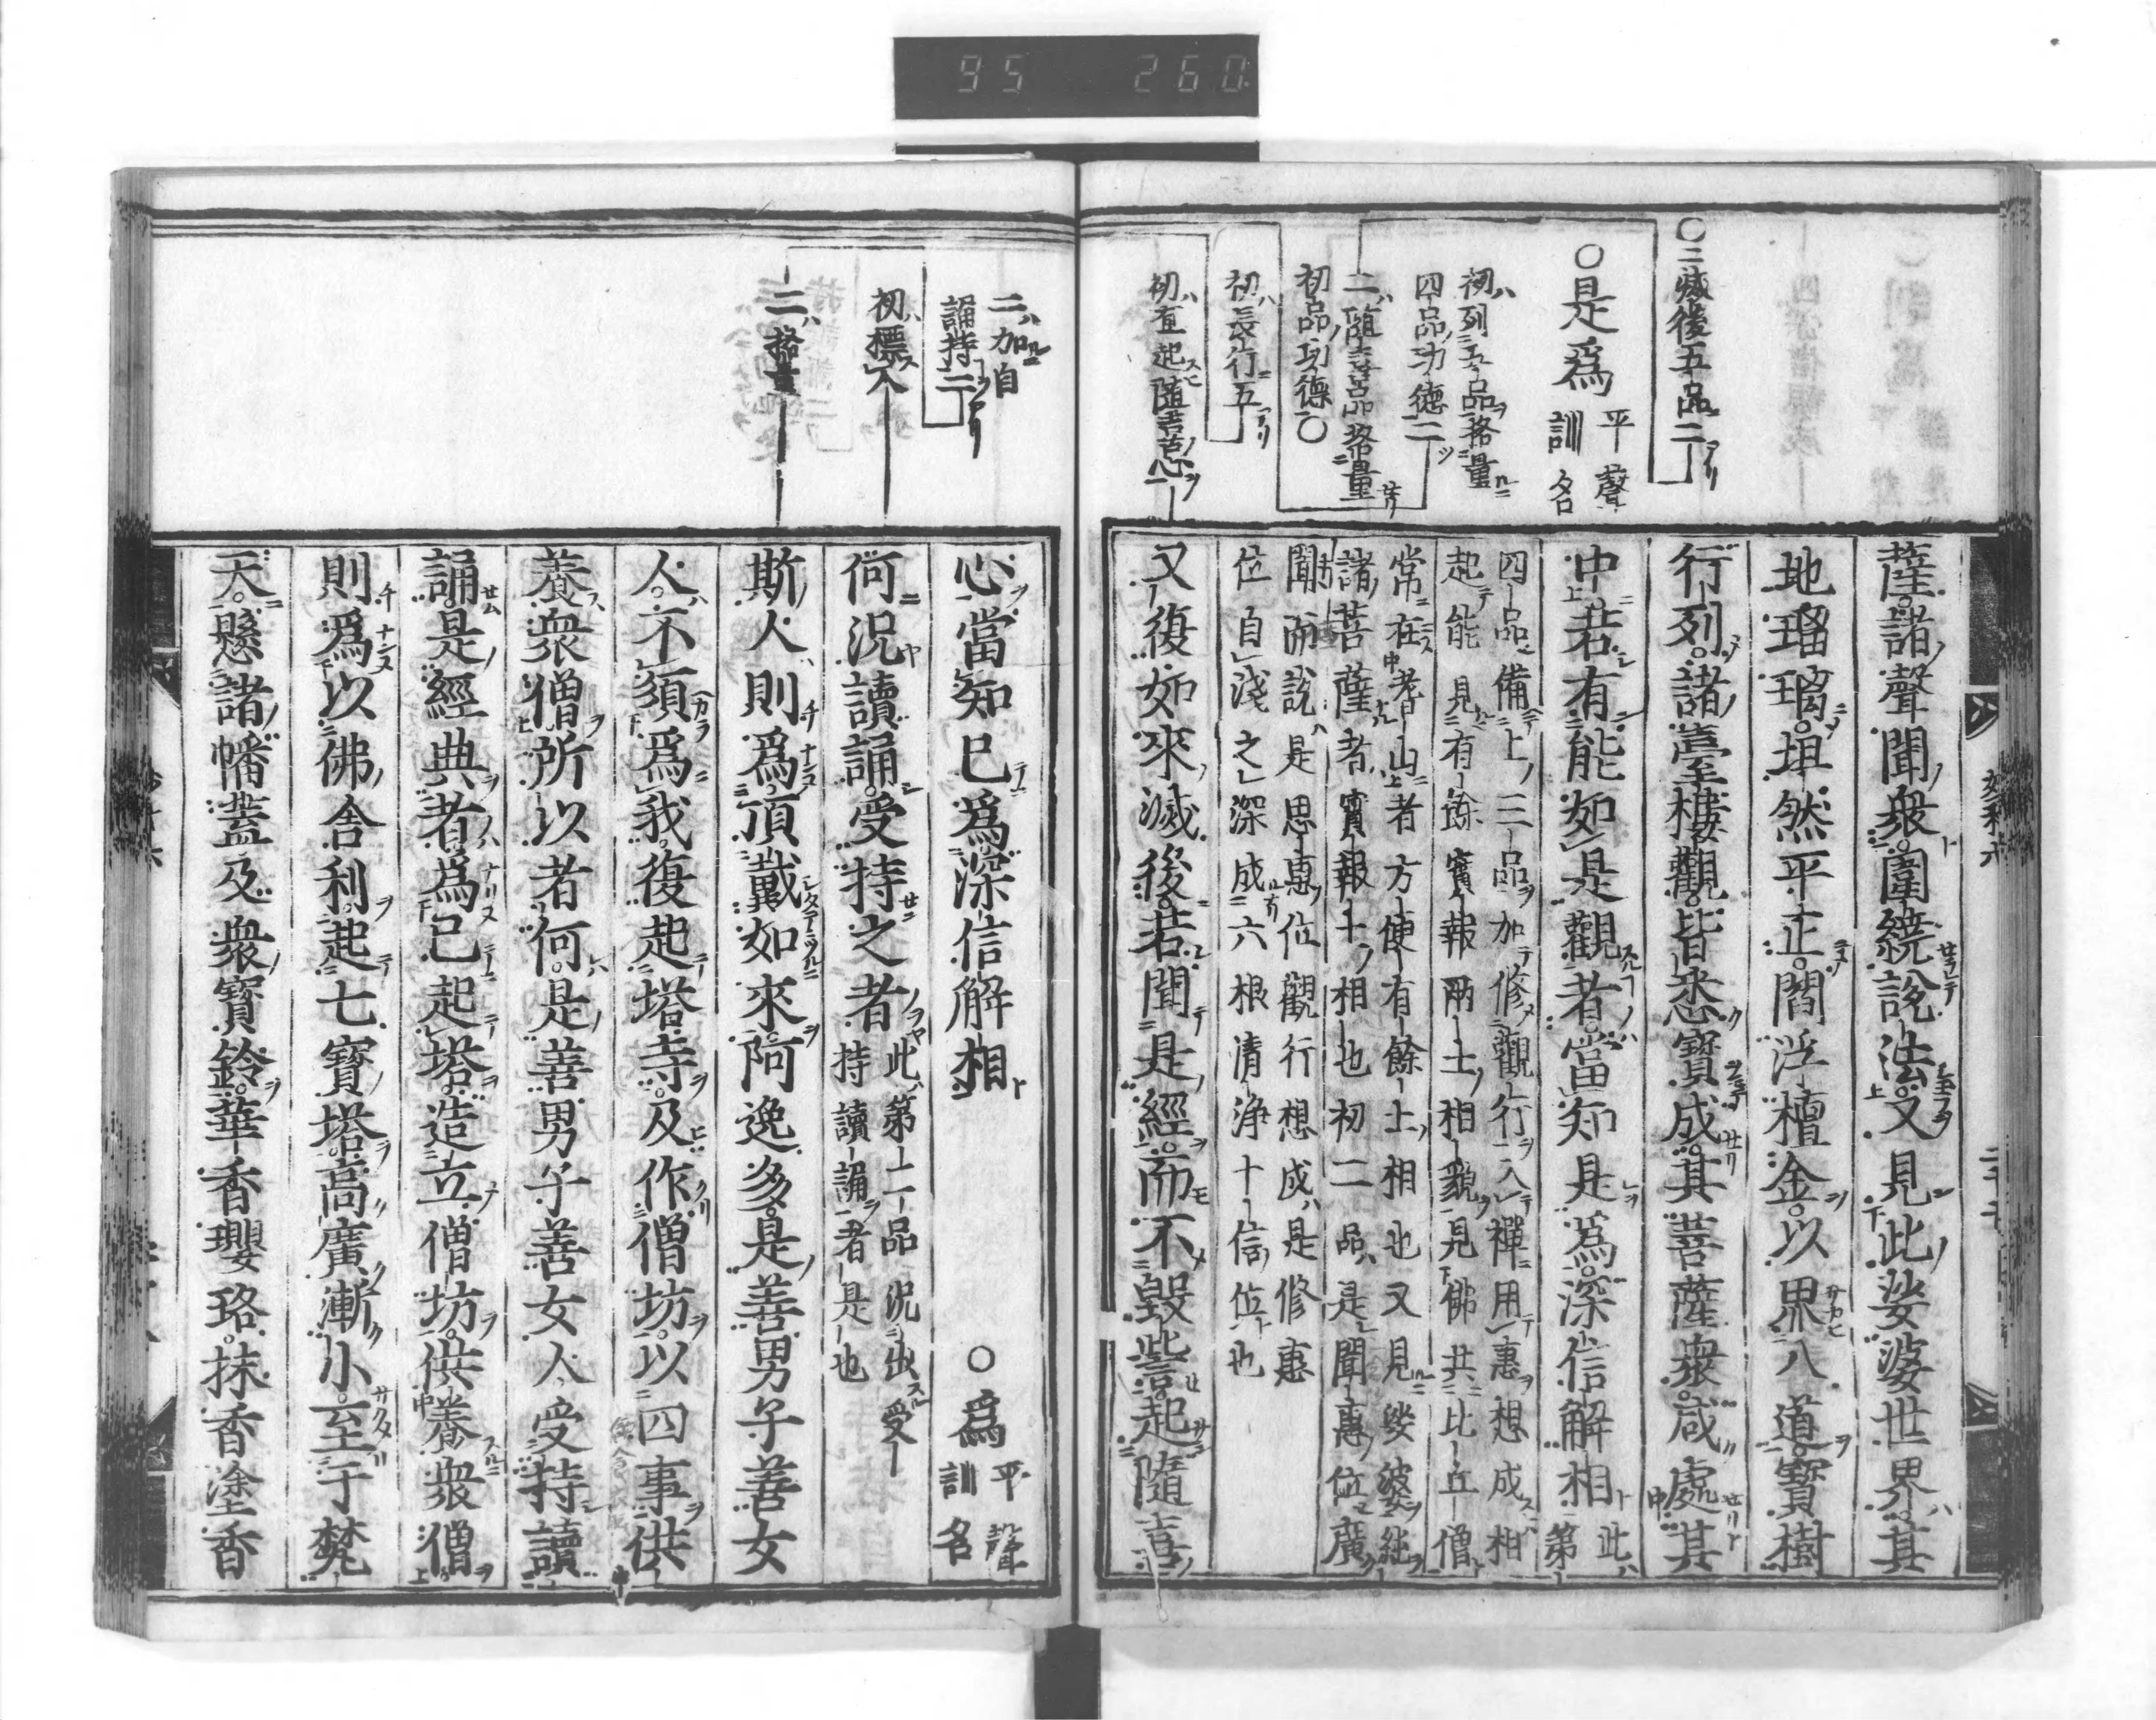 95 260
○二滅後五品二
○是為 平聲 訓名
初列五品格量
四品功德二
二隨喜品格量
初品功德○
初長行五
初直起隨喜心
薩諸聲聞衆圍繞說法又見此娑婆世界其
地瑠璃坦然平正閻浮檀金以界八道寶樹
行列諸臺樓觀皆悉寶成其菩薩衆咸處其
中若有能如是觀者當知是為深信解相 此第
四品備上三品加修觀行入禪用惠想成相
起能見有餘實報兩土相貌見佛共比丘僧
常在耆山者方便有餘土相也又見娑婆純
諸菩薩者實報土相也初二品是聞惠位廣
聞而說是思惠位觀行想成是修惠
位自淺之深成六根清淨十信位也
又復如來滅後若聞是經而不毀呰起隨喜
二加自
誦持二
初標人
二格量
心當知已為深信解相 ○為 平聲 訓名
何況讀誦受持之者 此第二品況出受
持讀誦者是也
斯人則為頂戴如來阿逸多是善男子善女
人不須為我復起塔寺及作僧坊以四事供
養衆僧所以者何是善男子善女人受持讀
誦是經典者為已起塔造立僧坊供養衆僧
則為以佛舍利起七寶塔高廣漸小至于梵
天懸諸幡蓋及衆寶鈴華香瓔珞抹香塗香